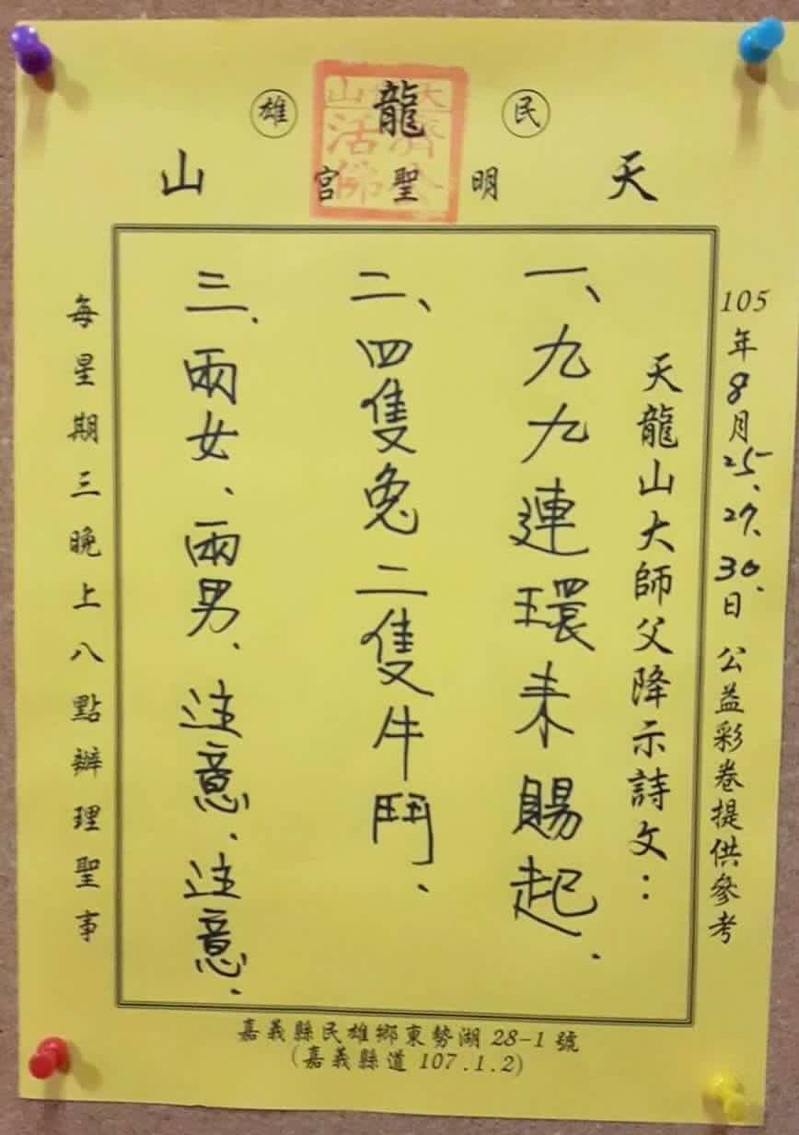 民雄
天龍山
明聖宮
濟公
活佛
105年8月25、27、30、日 公益彩卷提供參考
天龍山大師父降示詩文：
一、九九連環来賜起、
二、四隻兔二隻牛鬥、
三、兩女、兩男、注意、注意、
每星期三晚上八點辦理聖事
嘉義縣民雄鄉東勢湖 28-1 號
(嘉義縣道 107.1.2)